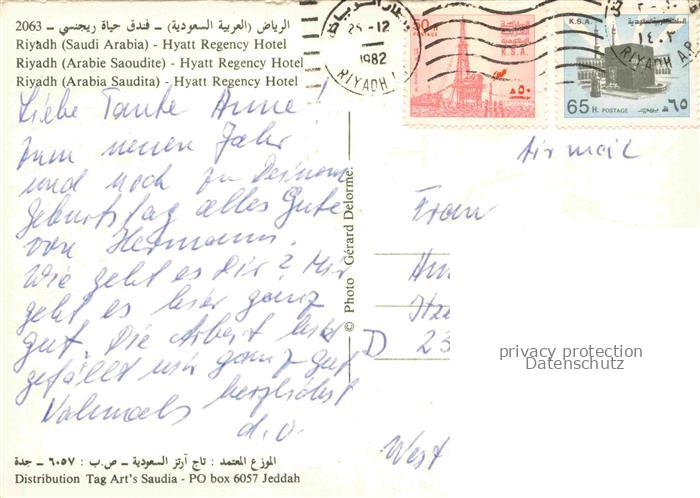 2063 – الرياض (العربية السعودية) – فندق حياة ريجنسي
Riyadh (Saudi Arabia) - Hyatt Regency Hotel
Riyadh (Arabie Saoudite) - Hyatt Regency Hotel
Riyadh (Arabia Saudita) - Hyatt Regency Hotel
Liebe Tante Anne!
Zum neuen Jahr
und noch zu Deinem
Geburtstag alles Gute
von Hermann.
Wie geht es Dir? Mir
geht es hier ganz
gut. Die Arbeit hier
gefällt mir ganz gut
Nochmals herzlichst
d. O.
الموزع المعتمد : تاج آرتز السعودية – ص.ب : ٦٠٥٧ – جدة
Distribution Tag Art's Saudia - PO box 6057 Jeddah
© Photo Gérard Delorme.
12
1982
RIYADH
50
K.S.A.
٥٠
K.S.A.
١٤٠٣
RIYADH
65 H. POSTAGE
٦٥
Air mail
Frau
D 23
West
privacy protection
Datenschutz